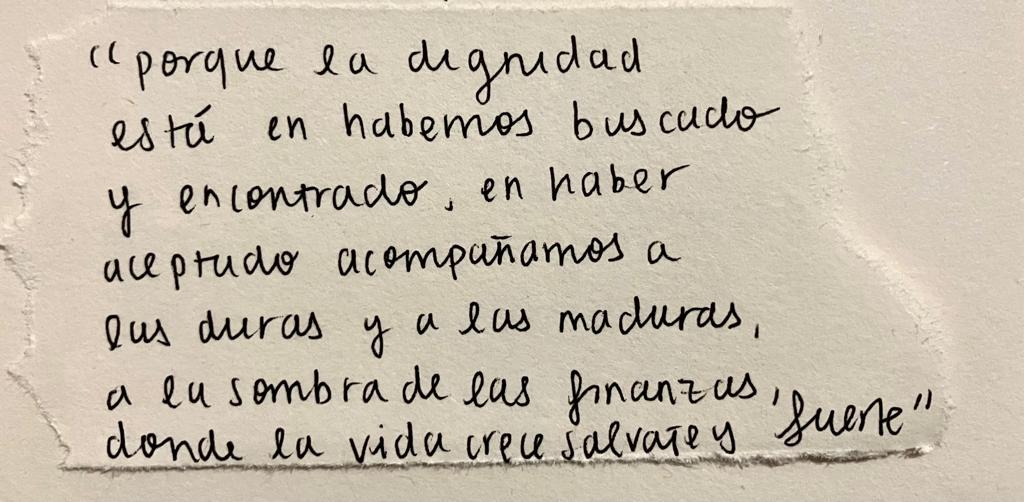 "porque la dignidad
está en habernos buscado
y encontrado, en haber
aceptado acompañarnos a
las duras y a las maduras,
a la sombra de las finanzas,
donde la vida crece salvaje y fuerte"